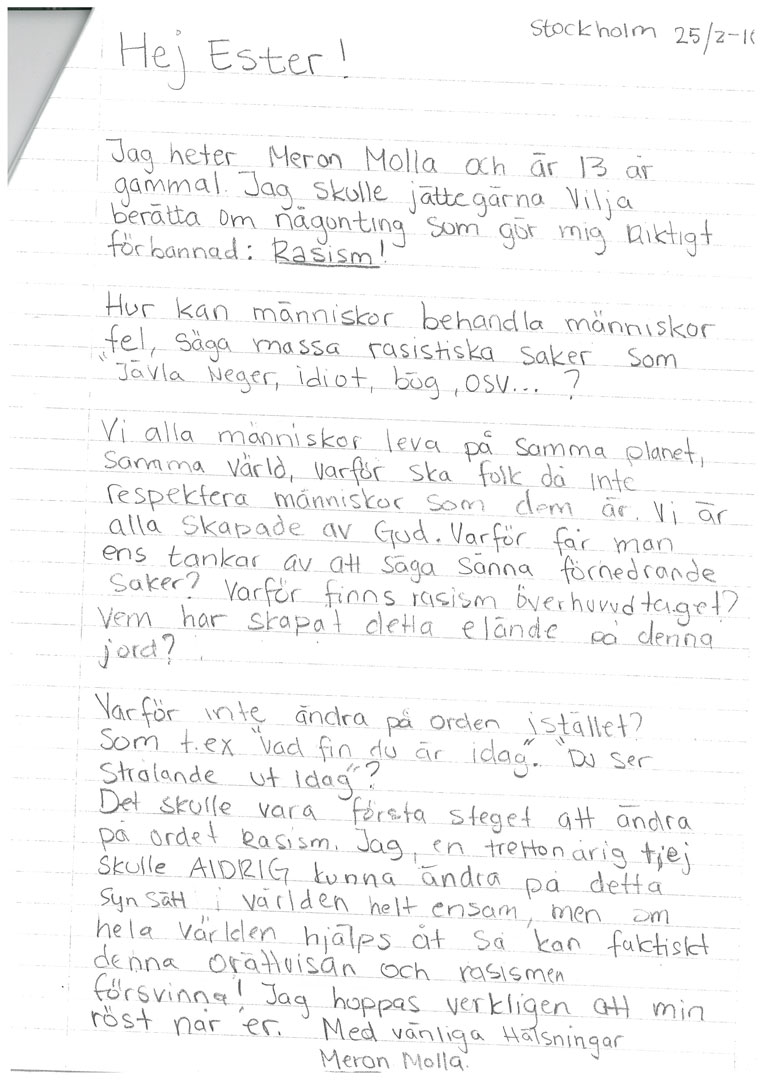 Stockholm 25/2-1
Hej Ester!
Jag heter Meron Molla och är 13 år
gammal. Jag skulle jättegärna vilja
berätta om någonting som gör mig Riktigt
förbannad: Rasism!
Hur kan människor behandla människor
fel, säga massa rasistiska saker som
"Jävla Neger, idiot, bög, osv... ?
Vi alla människor leva på samma planet,
samma värld, varför ska folk då inte
respektera människor som dem är. Vi är
alla skapade av Gud. Varför får man
ens tankar av att säga sånna förnedrande
saker? Varför finns rasism överhuvudtaget?
Vem har skapat detta elände på denna
jord?
Varför inte ändra på orden istället?
Som t.ex "vad fin du är idag". "Du ser
Strålande ut idag"?
Det skulle vara första steget att ändra
på ordet Rasism. Jag, en trettonårig tjej
skulle AlDRIG kunna ändra på detta
synsätt i världen helt ensam, men om
hela världen hjälps åt så kan faktiskt
denna orättvisan och rasismen
försvinna! Jag hoppas verkligen att min
röst når er. Med vänliga Hälsningar
Meron Molla.